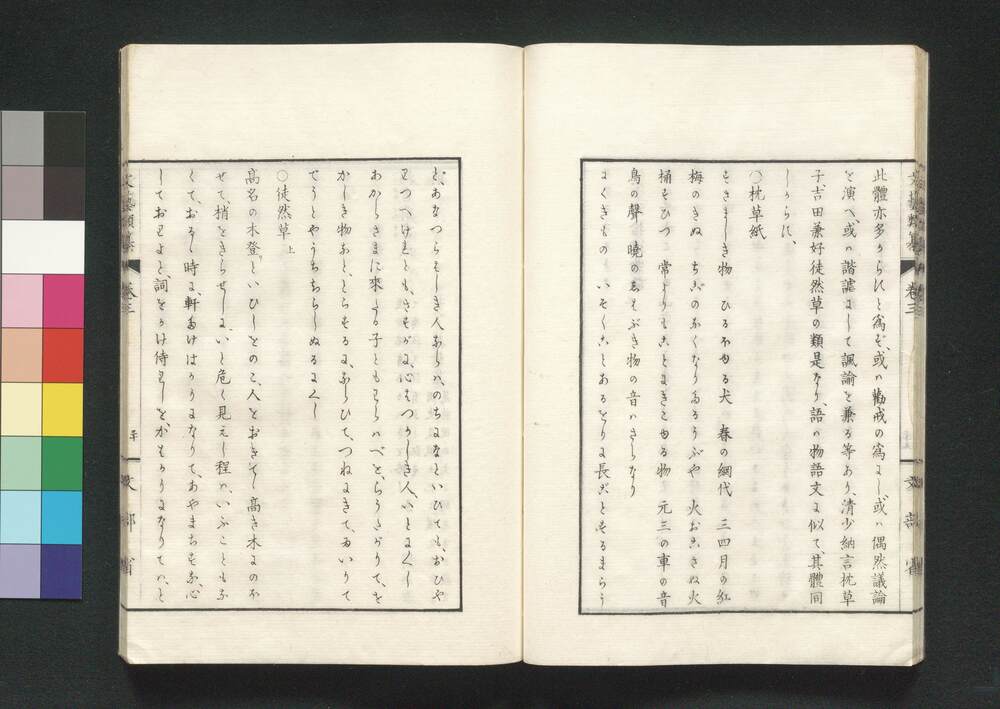 此體亦多からずと爲ど、或ハ勸戒の爲にし或ハ偶然議論
を演へ、或ハ諧謔にして諷諭を兼る等あり、清少納言枕草
子吉田兼好徒然草の類是なり、語ハ物語文に似て、其體同
しからず、
〇枕草紙
すさましき物 ひるほゆる犬 春の網代 三四月の紅
梅のきぬ ちごのなくなりたるうぶや 火おこさぬ火
桶すひつ 常よりもことにきこゆる物 元三の車の音
鳥の聲 曉のしはぶき物の音ハさらなり
にくきもの いそくことあるをりに長ごとするまらう
ど、あなつらはしき人ならハ、のちになといひても、おひや
りつへけれとも、さすがに、心はつかしき人、いとにくし
あからさまに來たる子ともわらハべを、らうたかりて、を
かしき物なと、とらするに、ならひて、つねにきて、ゐいりて
てうとやうちちらしぬるにくし
〇徒然草上
高名の木登といひしをのこ、人をおきてゝ高き木にのほ
せて梢をきらせしに、いと危く見えし程ハ、いふこともな
くて、おるゝ時に、軒たけはかりになりて、あやまちすな、心
しておりよと、詞をかけ侍りしを、かはかりになりてハ、と
文藝類纂 卷三
文部省